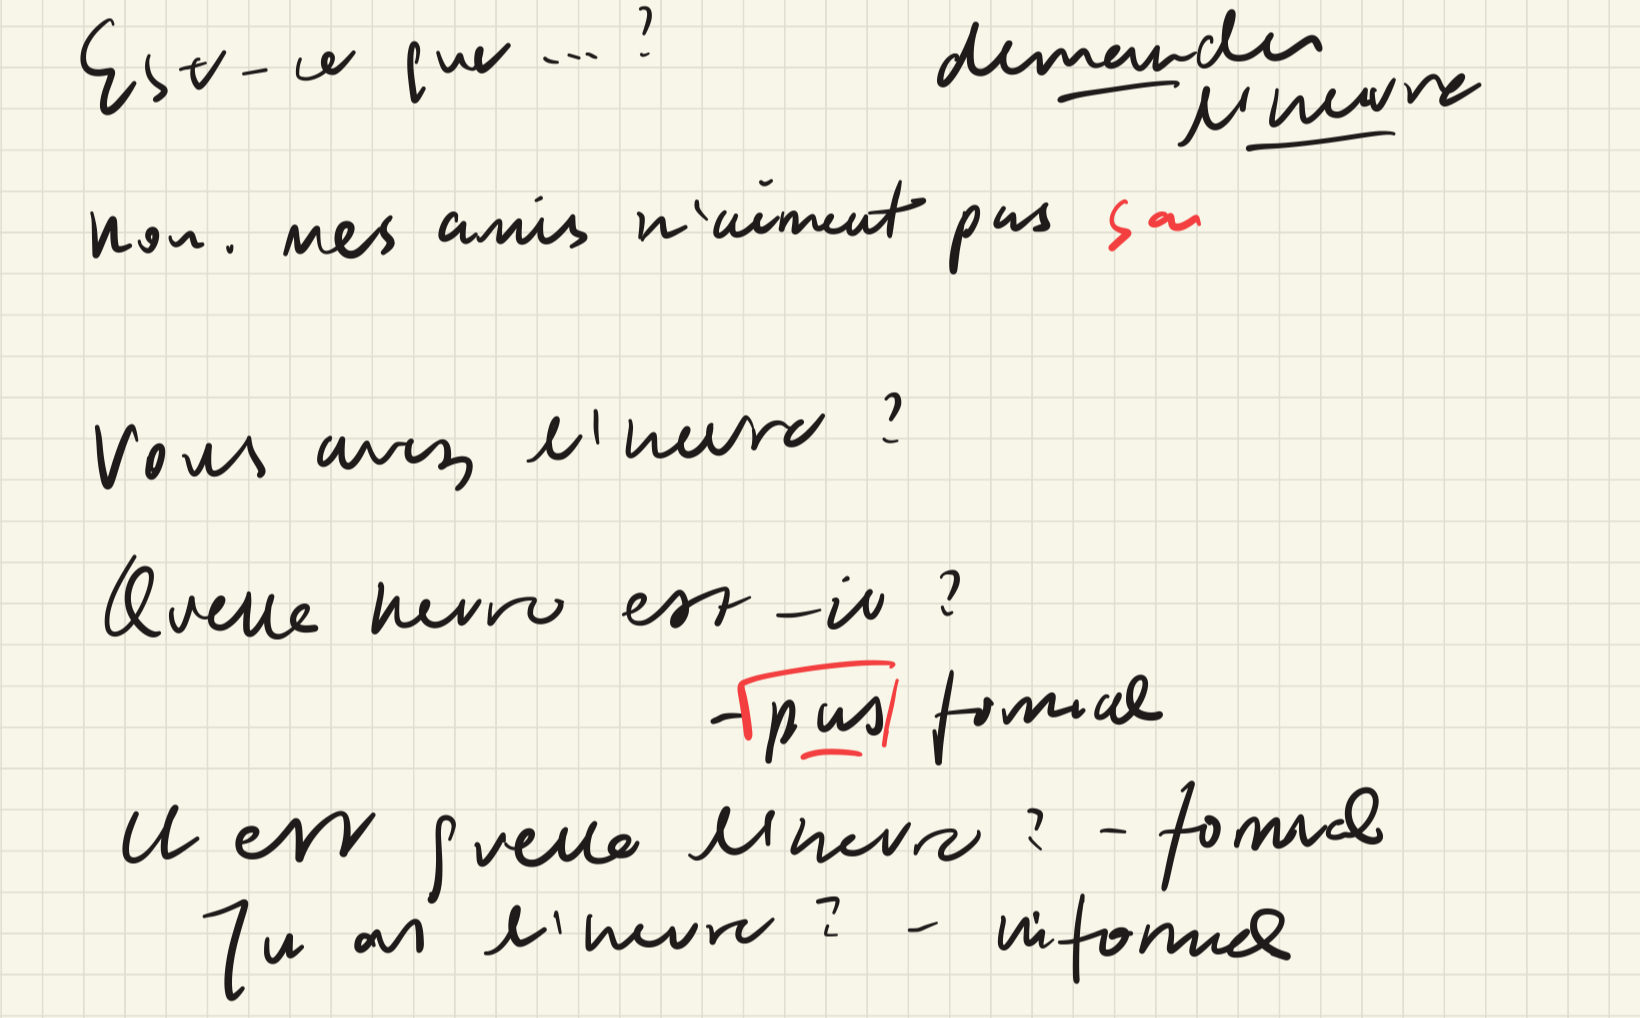 Est-ce que ...?
demander l'heure
Non. mes amis n'aiment pas ça
Vous avez l'heure ?
Quelle heure est-il ?
- pas formal
Il est quelle l'heure ? - formal
Tu as l'heure ? - informal